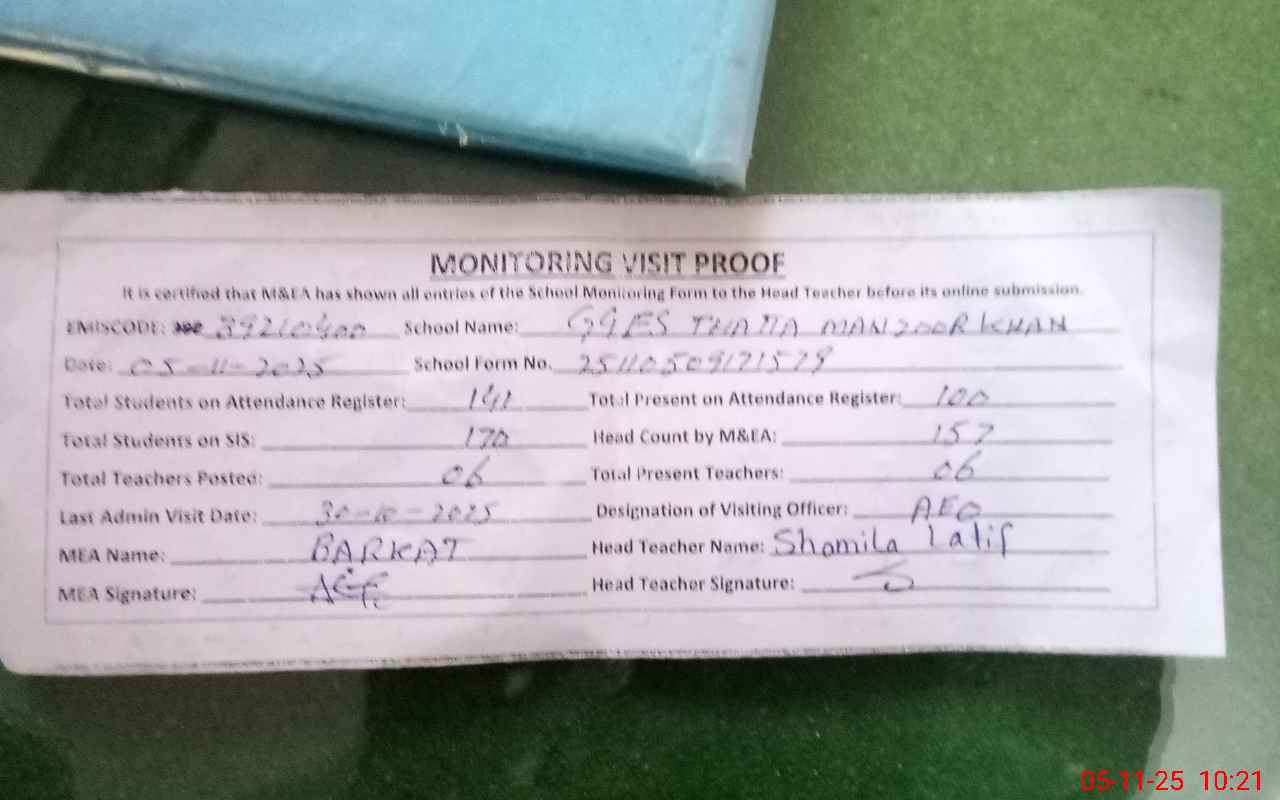 MONITORING VISIT PROOF
It is certified that M&EA has shown all entries of the School Monitoring Form to the Head Teacher before its online submission.
EMISCODE: 39210400 School Name: GGES THATTA MANZOOR KHAN
Date: 05-11-2025 School Form No. 25110509171579
Total Students on Attendance Register: 141 Total Present on Attendance Register: 100
Total Students on SIS: 170 Head Count by M&EA: 157
Total Teachers Posted: 06 Total Present Teachers: 06
Last Admin Visit Date: 30-10-2025 Designation of Visiting Officer: AEO
MEA Name: BARKAT Head Teacher Name: Shamila latif
MEA Signature: Head Teacher Signature:
05-11-25 10:21